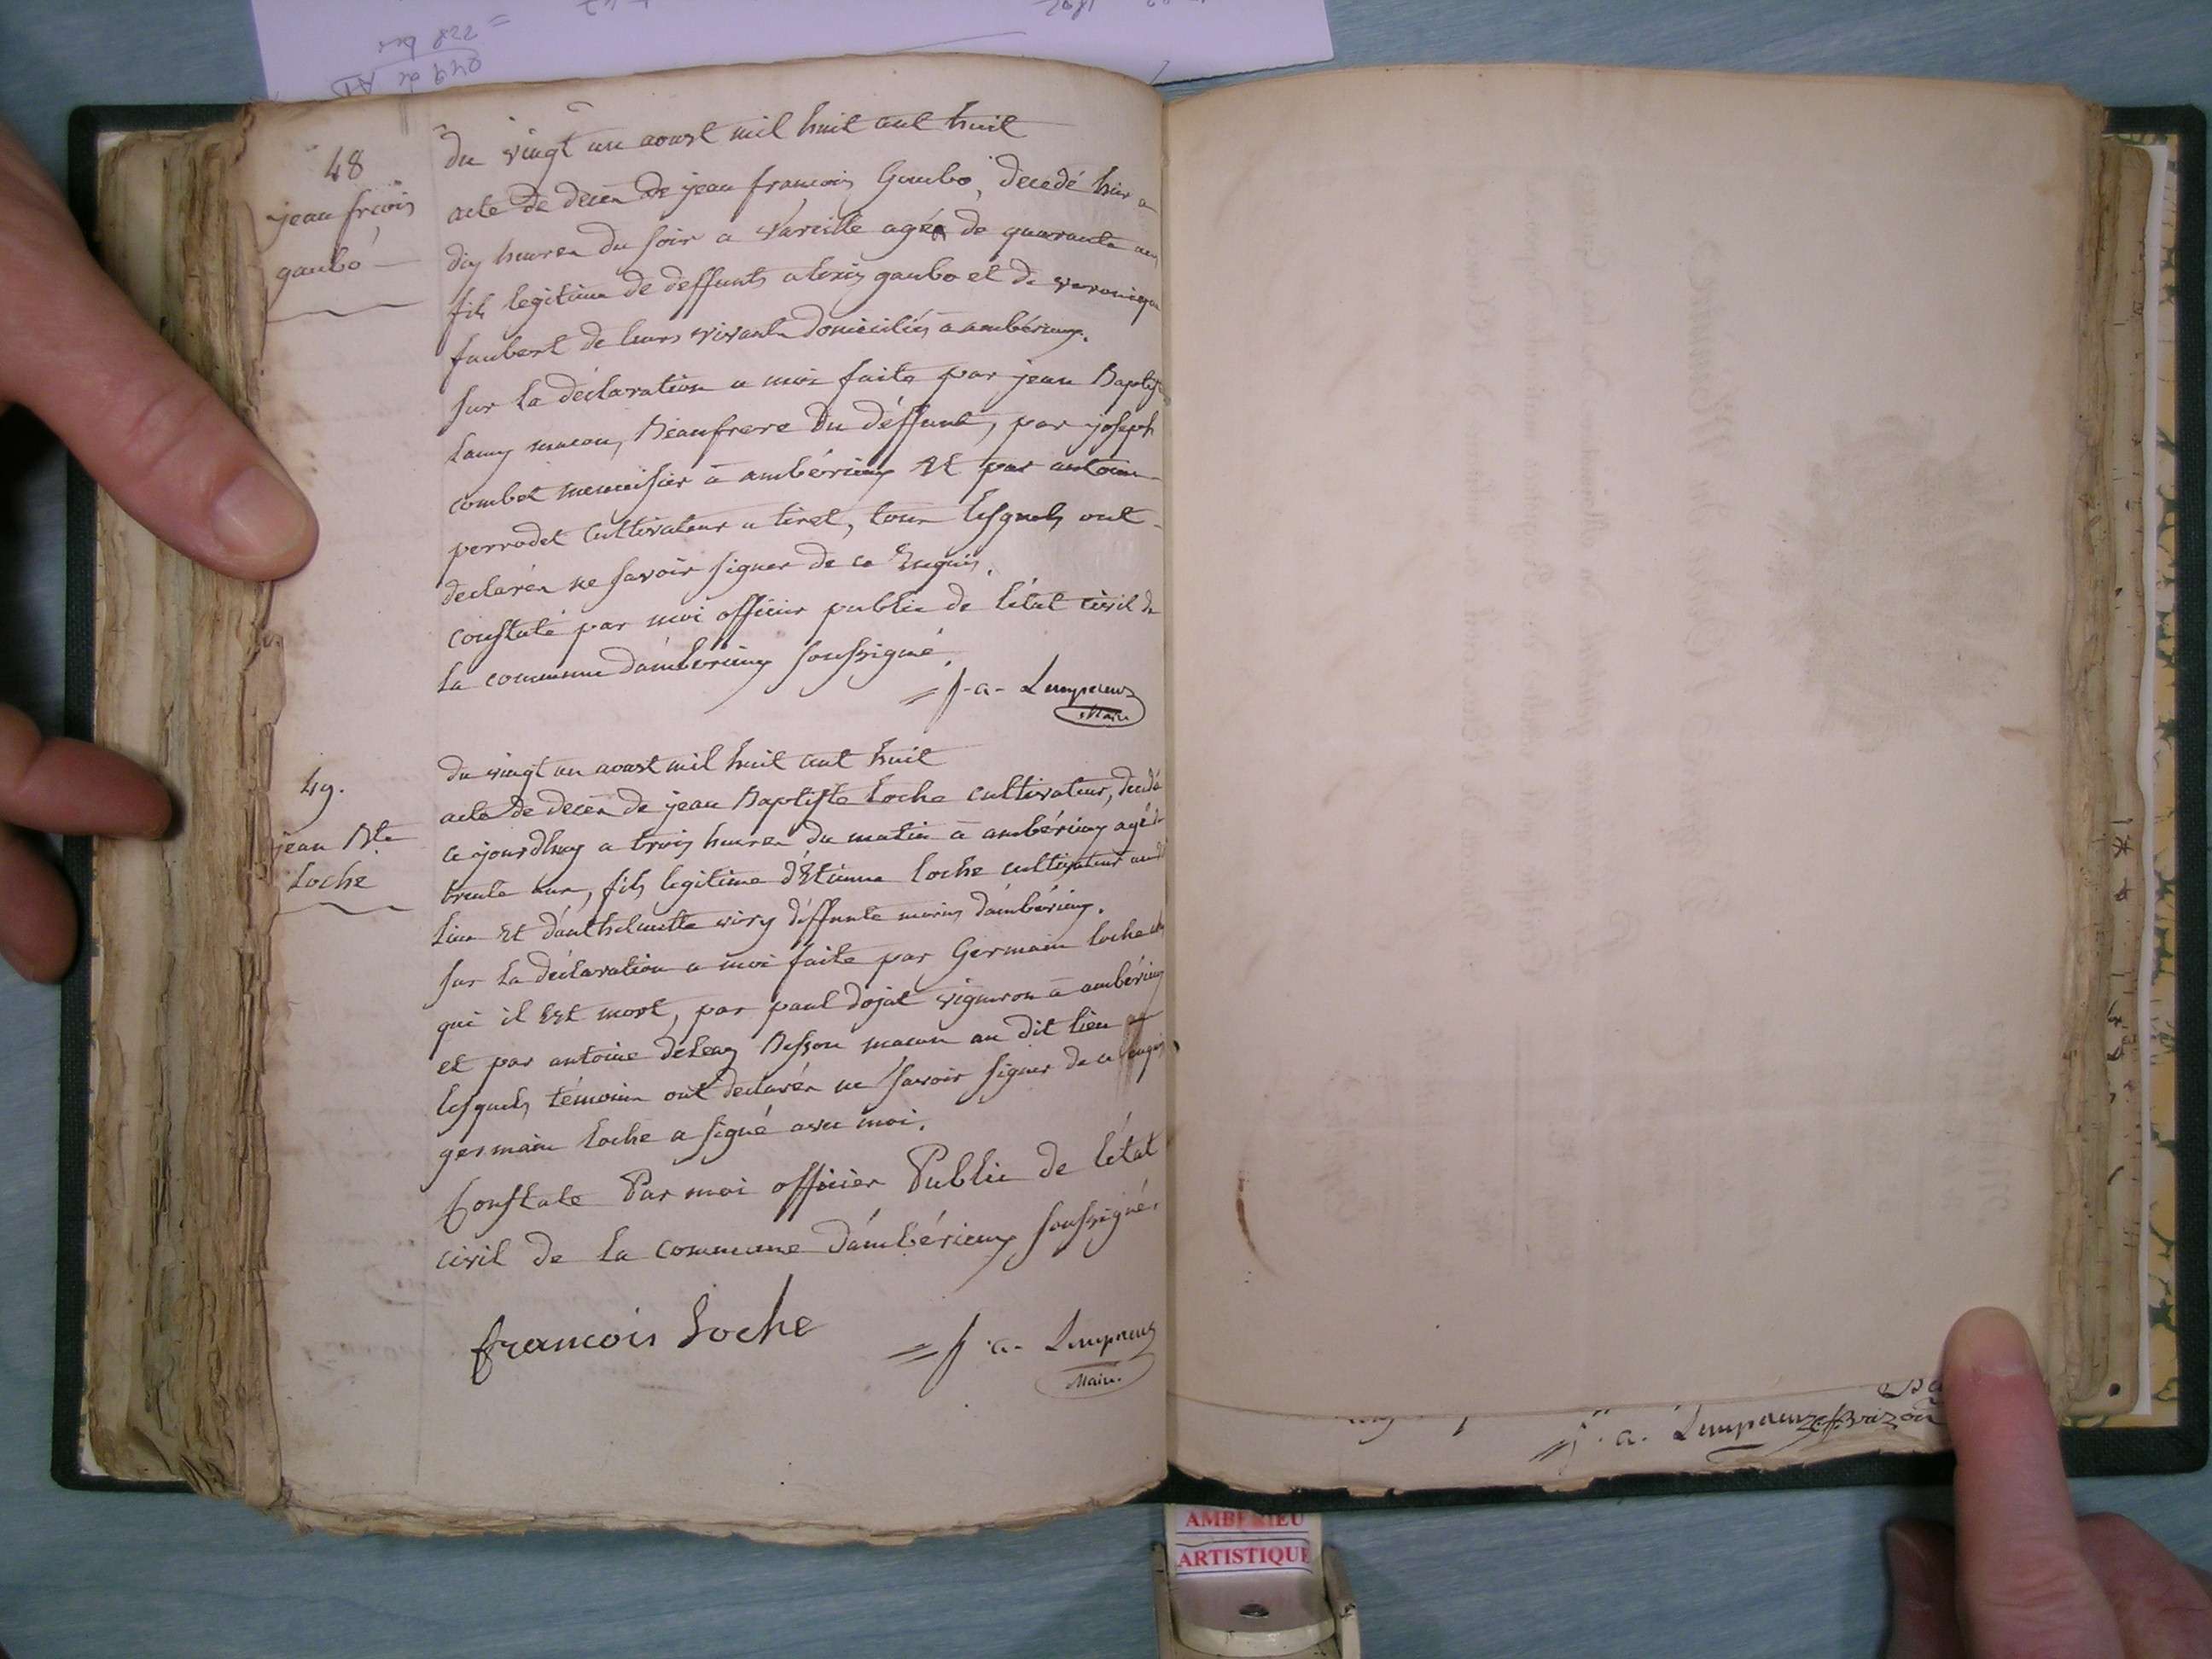 48
jean frcois
gaubo
du vingt un aoust mil huit cent huit
acte de deces de jean francois Gaubo, decedé hier a
dix heures du soir a Vareille agée de quarante ans
fils legitime de deffunts alexis gaubo et de veronique
faubert de leurs vivants domiciliés a ambérieux.
sur la déclaration a moi faite par jean Baptiste
Lamy macon, Beaufrere du déffunt, par joseph
combet menuisier à ambérieux Et par antoine
perrodet cultivateur a tiret, tous lesquels ont
declarés ne savoir signer de ce Enquis.
constaté par moi officier public de létat civil de
la commune d'ambérieux soussigné.
= j-a- Lempereur
Maire
49.
jean Bte
Loche
du vingt un aoust mil huit cent huit
acte de deces de jean Baptiste Loche cultivateur, decédé
ce jourdhuy a trois heures du matin à ambérieux agé de
trente ans, fils legitime d'Etienne Loche cultivateur audit
lieu Et d'anthelmette viry déffunte mariés d'ambérieux.
sur la déclaration a moi faite par Germain Loche chez
qui il Est mort, par paul dojat vigneron à ambérieux
et par antoine deleaz Besson macon au dit lieu
lesquels témoins ont declarés ne savoir signer de ce enquis
germain Loche a signé avec moi.
Constate Par moi officier Public de létat
civil de la commune d'ambérieux soussigné.
francois Loche
= j-a- Lempereur
Maire.
= j. a. Lempereur
AMBERIEU
ARTISTIQUE